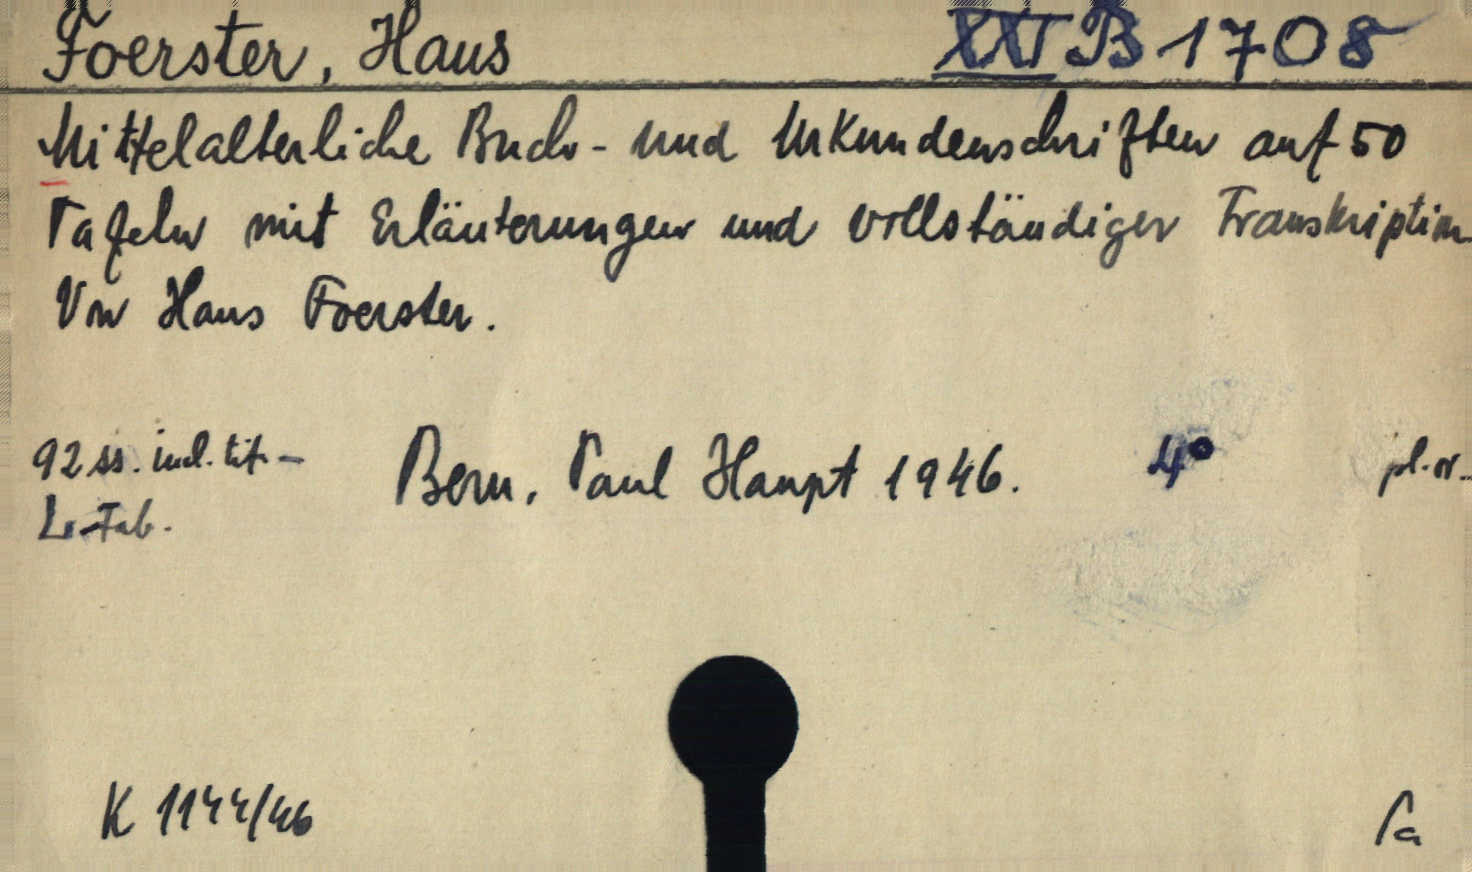 Foerster, Hans XXI B 1708
Mittelalterliche Buch- und Urkundenschriften auf 50
Tafeln mit Erläuterungen und vollständiger Transkription
Von Hans Foerster.
92 ss. incl. tit. -
Bern, Paul Haupt 1946. 4° pl. or..
L. Tab.
K 1144/46